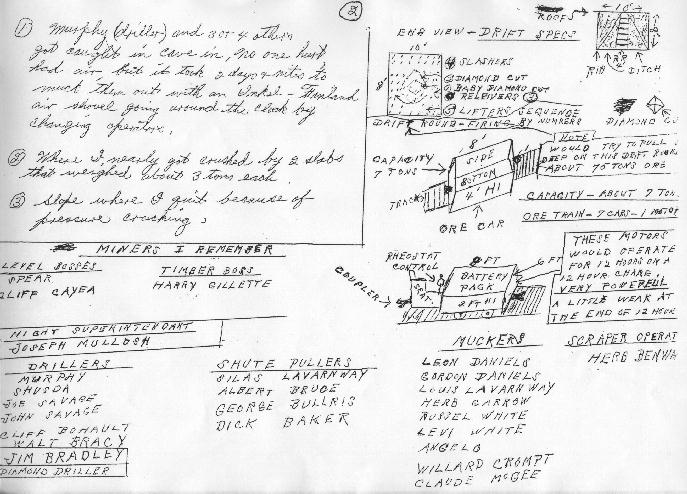 ②
① Murphy (driller) and 3 or 4 others
got caught in cave in, no one hurt
had air, but it took 2 days & nites to
muck them out with an Finland
air shovel going around the clock by
changing operators.
② Where I nearly got crushed by 2 slabs
that weighed about 3 tons each.
③ Slope where I quit because of
pressure cracking.
END VIEW - DRIFT SPECS
ROOFS
10'
8'
RIB
RR
DITCH
10'
8'
SLASHERS
DIAMOND CUT
BABY DIAMOND CUT
RELEIVERS
LIFTERS SEQUENCE
DRIFT ROUND - FIRING BY NUMBERS
DIAMOND CUT
NOTE
WOULD TRY TO PULL
DEEP ON THIS DRIFT ROUND
ABOUT 75 TONS ORE
CAPACITY
7 TONS
8'
SIDE
BOTTOM
4' HI
TRACK
ORE CAR
CAPACITY - ABOUT 7 TON
ORE TRAIN - 7 CARS - 1 MOTOR
RHEOSTAT
CONTROL
COUPLER
SEAT
8 FT
BATTERY
PACK
6 FT
THESE MOTORS
WOULD OPERATE
FOR 12 HOURS ON A
12 HOUR CHARGE,
VERY POWERFULL
A LITTLE WEAK AT
THE END OF 12 HOUR
MINERS I REMEMBER
LEVEL BOSSES
SPEAR
CLIFF CAYEA
TIMBER BOSS
HARRY GILLETTE
NIGHT SUPERINTENDANT
JOSEPH MULLOSH
DRILLERS
MURPHY
SHUSDA
JOE SAVAGE
JOHN SAVAGE
CLIFF BOHAULT
WALT BRACY
JIM BRADLEY
DIAMOND DRILLER
SHUTE PULLERS
SILAS LAVARNWAY
ALBERT BRUCE
GEORGE BULLRIS
DICK BAKER
MUCKERS
LEON DANIELS
GORDON DANIELS
LOUIS LAVARNWAY
HERB GARROW
RUSSEL WHITE
LEVI WHITE
ANGELO
WILLARD CROMPT
CLAUDE McGEE
SCRAPER OPERAT
HERB BENWA